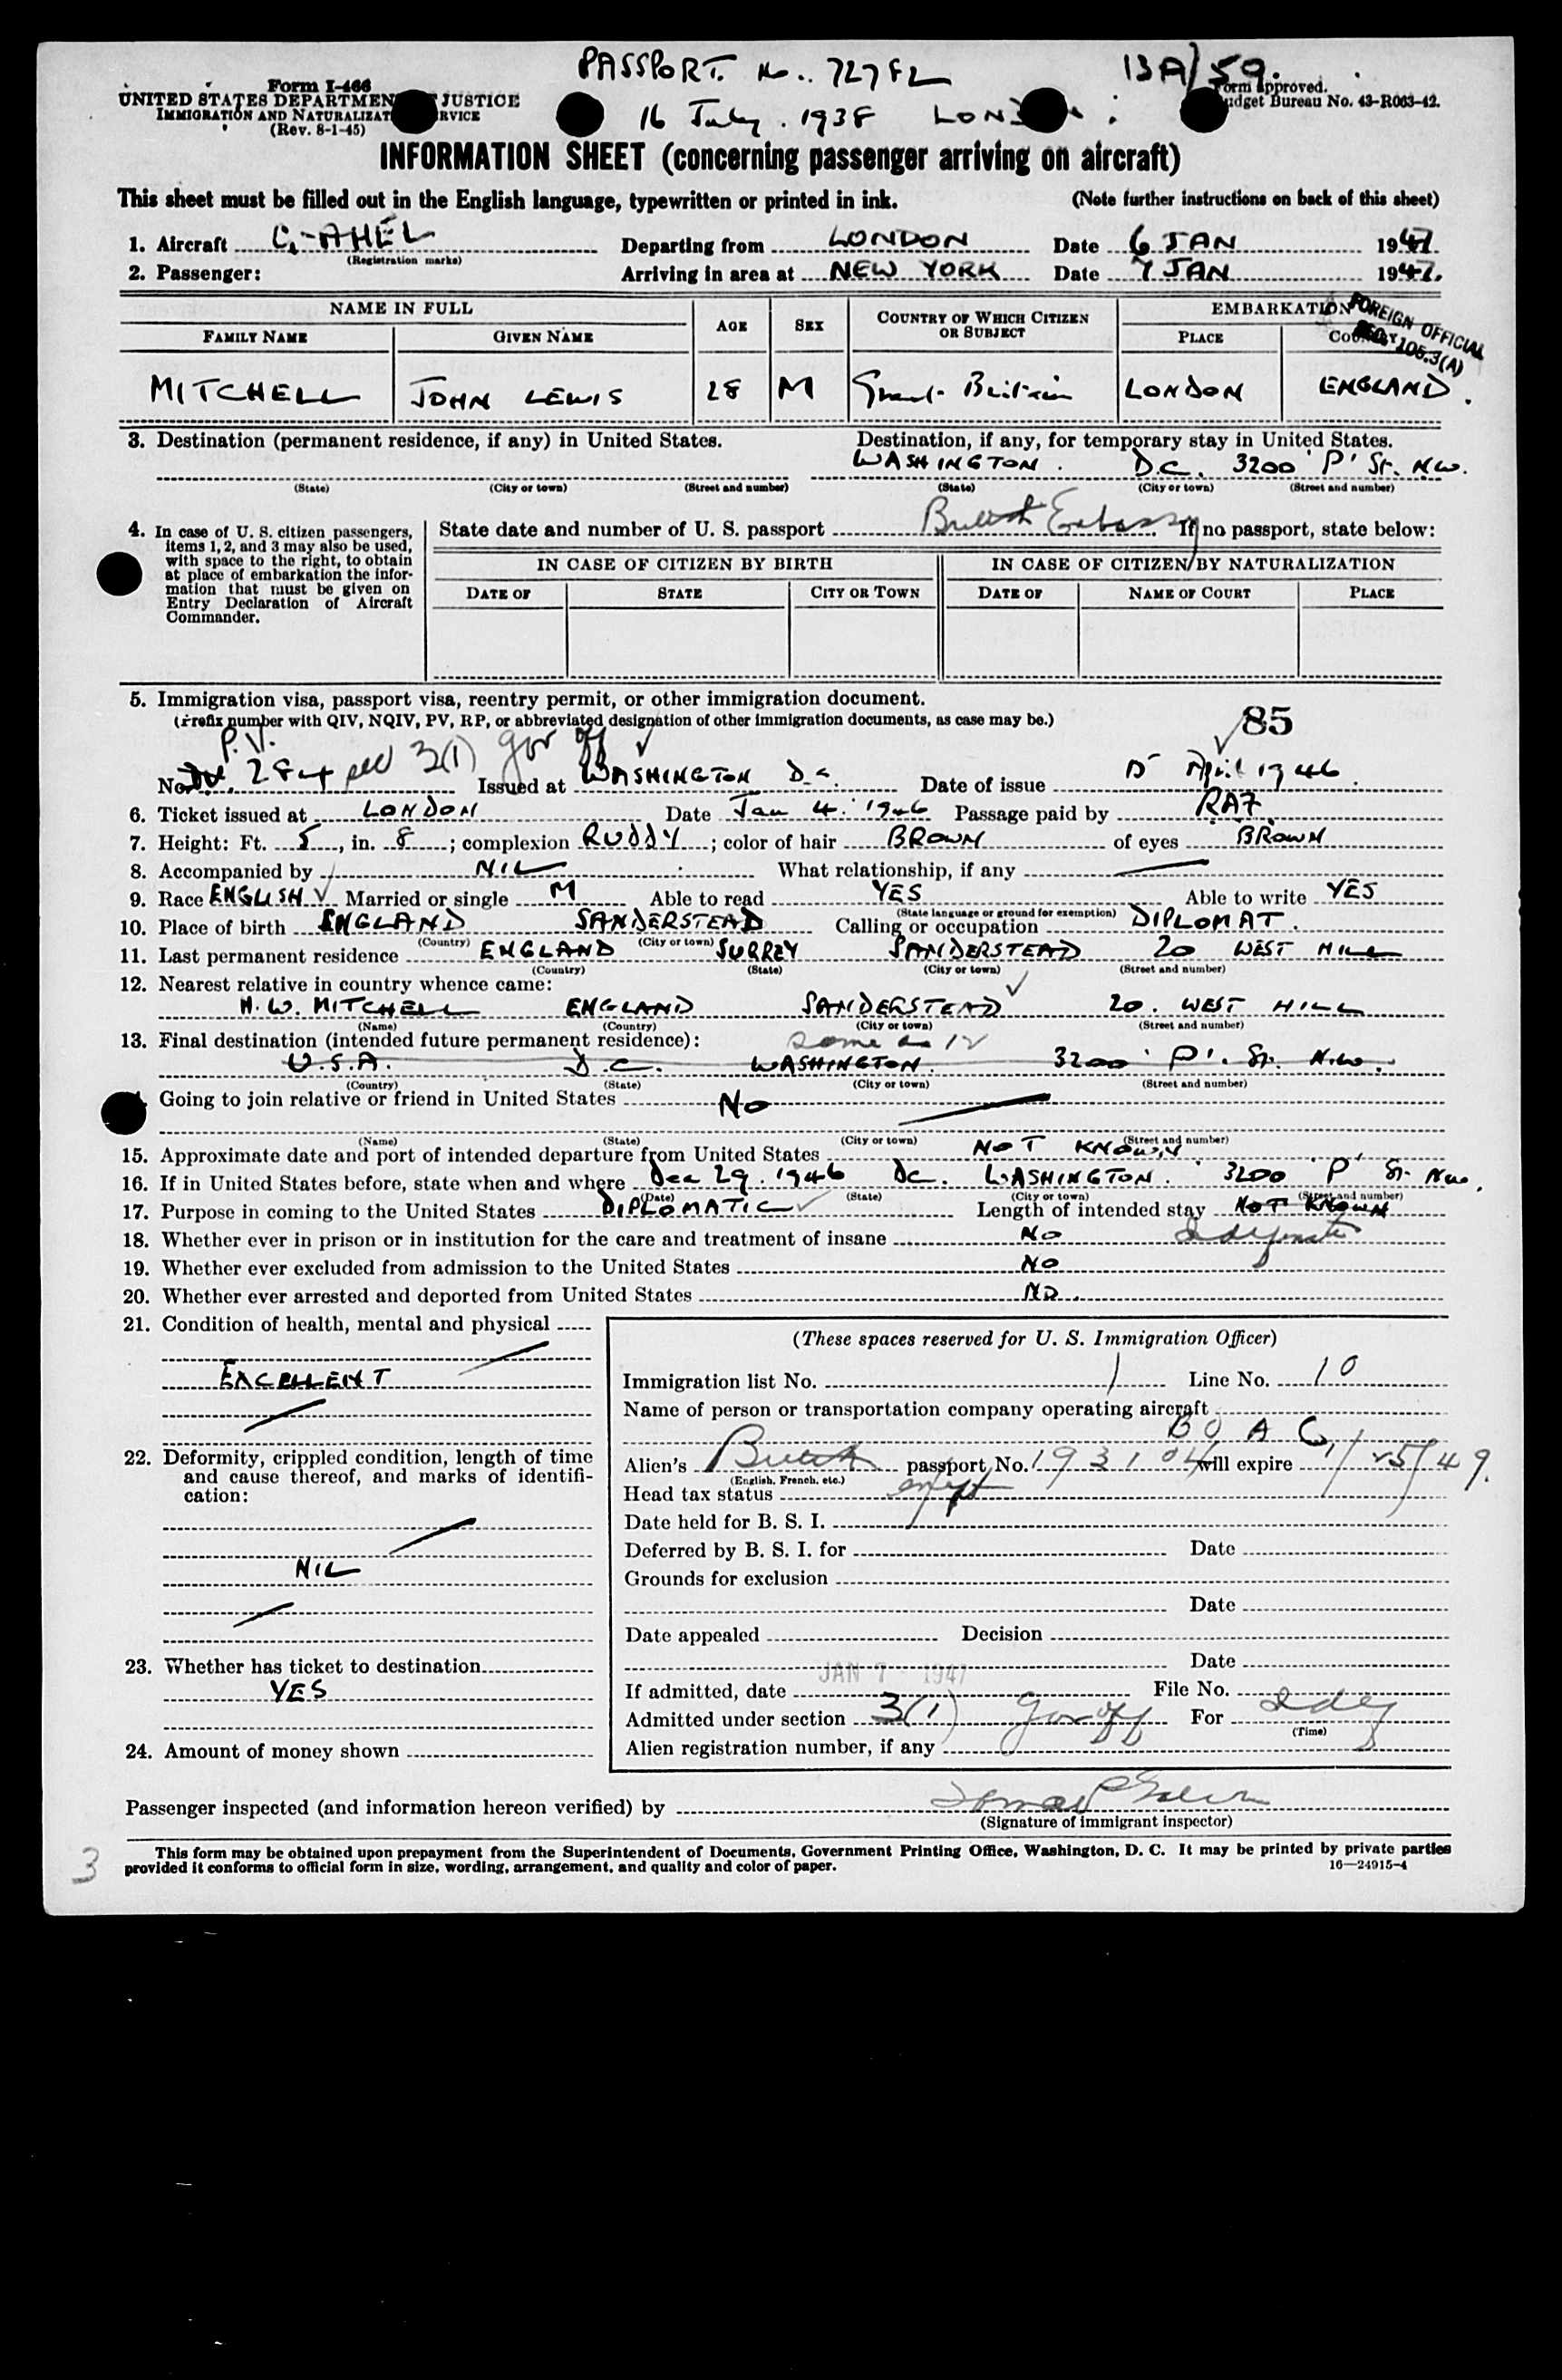 PASSPORT. No.. 72782 13A/59.
Form I-466 Form approved.
UNITED STATES DEPARTMENT JUSTICE Budget Bureau No. 43-R063-42.
IMMIGRATION AND NATURALIZAT RVICE
(Rev. 8-1-45) 16 July. 1938 LONDON
INFORMATION SHEET (concerning passenger arriving on aircraft)
This sheet must be filled out in the English language, typewritten or printed in ink. (Note further instructions on back of this sheet)
1. Aircraft G-AHEL Departing from LONDON Date 6 JAN 1947
(Registration marks)
2. Passenger: Arriving in area at NEW YORK Date 7 JAN 1947.
NAME IN FULL AGE SEX COUNTRY OF WHICH CITIZEN OR SUBJECT EMBARKATION
FAMILY NAME GIVEN NAME PLACE COUNTRY
FOREIGN OFFICIAL
SEC. 105.3(A)
MITCHELL JOHN LEWIS 28 M Great Britain LONDON ENGLAND.
3. Destination (permanent residence, if any) in United States. Destination, if any, for temporary stay in United States.
WASHINGTON. D.C. 3200 'P' St. N.W.
(State) (City or town) (Street and number) (State) (City or town) (Street and number)
4. In case of U. S. citizen passengers, items 1, 2, and 3 may also be used, with space to the right, to obtain at place of embarkation the information that must be given on Entry Declaration of Aircraft Commander.
State date and number of U. S. passport British Embassy If no passport, state below:
IN CASE OF CITIZEN BY BIRTH IN CASE OF CITIZEN BY NATURALIZATION
DATE OF STATE CITY OR TOWN DATE OF NAME OF COURT PLACE
5. Immigration visa, passport visa, reentry permit, or other immigration document.
(Prefix number with QIV, NQIV, PV, RP, or abbreviated designation of other immigration documents, as case may be.) 85
P.V.
No. 284 sec 3(1) gov off Issued at WASHINGTON D.C. Date of issue 15 April 1946.
6. Ticket issued at LONDON Date Jan 4. 1946 Passage paid by RAF
7. Height: Ft. 5, in. 8; complexion RUDDY; color of hair BROWN of eyes BROWN
8. Accompanied by NIL What relationship, if any
9. Race ENGLISH Married or single M Able to read YES Able to write YES
(State language or ground for exemption)
10. Place of birth ENGLAND SANDERSTEAD Calling or occupation DIPLOMAT.
(Country) (City or town)
11. Last permanent residence ENGLAND SURREY SANDERSTEAD 20 WEST HILL
(Country) (State) (City or town) (Street and number)
12. Nearest relative in country whence came:
H. W. MITCHELL ENGLAND SANDERSTEAD 20. WEST HILL
(Name) (Country) (City or town) (Street and number)
13. Final destination (intended future permanent residence): Same as 12
U.S.A. D.C. WASHINGTON. 3200 'P'. St. N.W.
(Country) (State) (City or town) (Street and number)
Going to join relative or friend in United States No
(Name) (State) (City or town) (Street and number)
15. Approximate date and port of intended departure from United States NOT KNOWN
16. If in United States before, state when and where Dec 29. 1946 DC. WASHINGTON. 3200 'P' St. NW.
(Date) (State) (City or town) (Street and number)
17. Purpose in coming to the United States DIPLOMATIC Length of intended stay NOT KNOWN
18. Whether ever in prison or in institution for the care and treatment of insane No Indefinite
19. Whether ever excluded from admission to the United States No
20. Whether ever arrested and deported from United States No.
21. Condition of health, mental and physical
EXCELLENT
22. Deformity, crippled condition, length of time and cause thereof, and marks of identification:
NIL
23. Whether has ticket to destination
YES
24. Amount of money shown
(These spaces reserved for U. S. Immigration Officer)
Immigration list No. 1 Line No. 10
Name of person or transportation company operating aircraft
B O A C
Alien's British passport No. 193104 will expire 1/25/49.
(English, French, etc.)
Head tax status exempt
Date held for B. S. I.
Deferred by B. S. I. for Date
Grounds for exclusion
Date
Date appealed Decision
Date
If admitted, date JAN 7 - 1947 File No.
Admitted under section 3(1) gov off For Indef
(Time)
Alien registration number, if any
Passenger inspected (and information hereon verified) by
(Signature of immigrant inspector)
This form may be obtained upon prepayment from the Superintendent of Documents, Government Printing Office, Washington, D. C. It may be printed by private parties
provided it conforms to official form in size, wording, arrangement, and quality and color of paper. 16—24915-4
3